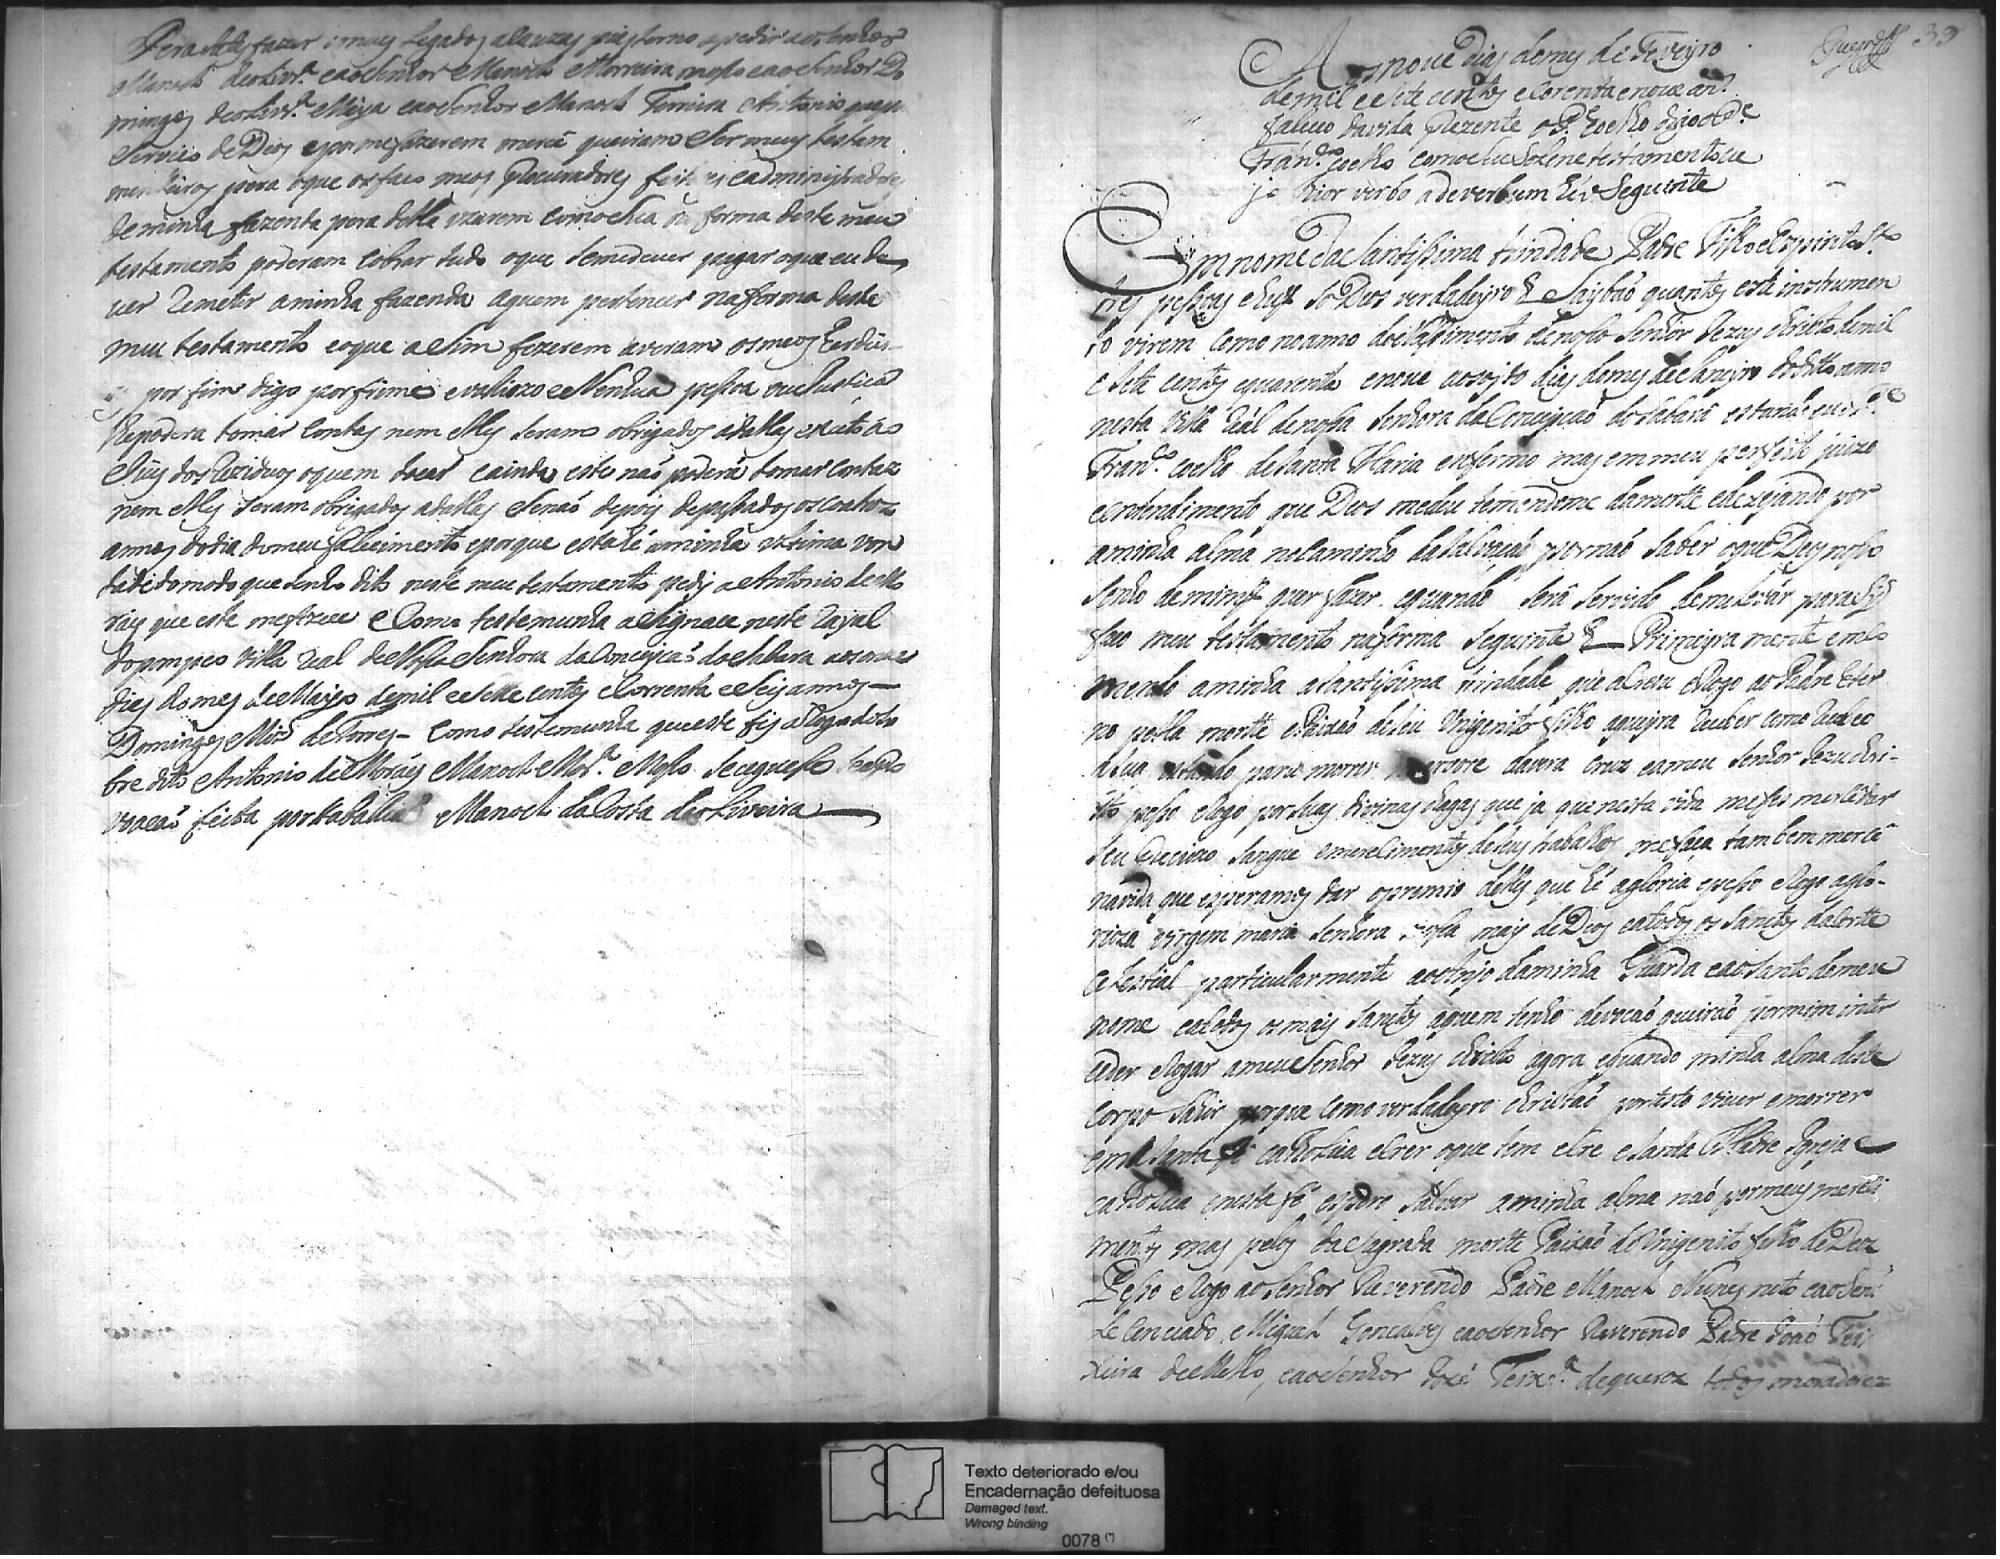 Pera satisfazer os meus Legados e a cauzas pias torno a pedir ao senhor
Manoel de oLivr.ª e ao senhor Manoel Morreira e ao senhor Do
mingos de oLivr.ª Maya e ao senhor Manoel Antonio
Servico de Deos e por me fazerem mercê queiram Ser meus testam
menteiros pera o que os faço meos Procuradores e administradores
de minha fazenda pera della uzarem como sua na forma deste meu
testamento poderam cobrar tudo o que se me dever pagar o que eu de
ver Remeter a minha fazenda a quem pertencer na forma deste
meu testamento e o que aSim fezerem averam os meos Erdei
por fim digo por firme e valiozo e Nenhua peSoa ou Justica
lhe podera tomar Contas nem elles seram obrigados a dallas
Juis dos Reziduos o quem tocar e ainda este não poderá tomar Contaz
nem elles seram obrigados a dallas senaó depois de paSados os coatro
annos do dia do meu falecimento e porque esta hé a minha ultima von
tade do modo que tenho dito neste meu testamento pedi a Antonio de Mo
rais que este me fizece e Como testemunha aSignace neste Rayal
villa Real de NoSa Senhora da Conceiçaó do Sabara aos
dias do mes de Mayo de mil e Sette centos e Correnta e Seis annos —
Domingos de Torres — Como testemunha que este fis a Rogo do so
bre dito Antonio de Moráis Manoel Mor.ª
vacaó feita por tabaliaó Manoel da Costa de oLiveira —
39
Aos nove dias do mes de Feveyro
de mil e Sete centos e Corenta e nove an.
faleceo da vida Prezente o P.e Coelho digo o P.e
Fran.co Coelho com o seu solene testamento
verbo ad verbum hé o Seguinte
Em nome da Santissima trindade Padre Filho e Espirito S.to
tres pesoas e hum só Deos verdadeyro & Saybaó quantos este instrumen
to virem Como no anno do NaScimento de noso Senhor Jezus christo de mil
e Sete centos e quarenta e nove aos oyto dias do mes de Janeyro do dito anno
nesta villa Reál de noSa Senhora da Conceiçaó do Sabara estando eu o P.e
Fran.co Coelho de Santa Maria enfermo mas em meu perfeito juizo
e entendimento que Deos me deu temendome da morte e dezejando por
a minha alma no caminho da Salvaçaó por naó Saber o que Deos noSo
Senhor de mim quer fazer e quando será Servido de me Levar para Sy
faço meu testamento na forma Seguinte & — Primeyramente enco
mendo a minha a Santissima trindade que a criou e Rogo ao Padre Eter
no pella morte e Paixaó de seu Unigenito filho a queyra Receber como Recebeo
a Sua estando para morrer na arvore da vera cruz e a meu Senhor Jezus chri-
sto peSo e Rogo por suas divinas chagas que ja que nesta vida me fes merce dar
Seu Precioso Sangue e merecimentos de seus trabalhos me faça tambem mercê
na vida que esperamos dar o premio delles que hé a gloria e peSo e Rogo a glo-
rioza virgem maria Senhora noSa mais de Deos e a todos os Santos da Corte
Celestial particularmente ao Anjo da minha Guarda e ao Santo de meu
nome e a todos os mais Santos a quem tenho devoçaó queiraó por mim inter
ceder e Rogar a meu Senhor Jezus christo agora e quando minha alma deste
corpo Sahir porque Como verdadeyro christaó protesto viver e morrer
em a Santa fé catholica e crer o que tem e cre e Santa Madre Igreja
catholica e nesta fé espero Salvar a minha alma naó por meus mereci
mentos mas pelos da Sagrada morte Paixaó do Unigenito filho de Deos
PeSo e Rogo ao Senhor Reverendo Padre Manoel Nunes neto e ao Sen.
Lecenciado Miguel Goncalves e ao Senhor Reverendo Padre Joaó Tei
xeira de Mello, e ao Senhor José Teixr.ª de queroz todos moradores
Texto deteriorado e/ou
Encadernação defeituosa
Damaged text.
Wrong binding
0078 (*)